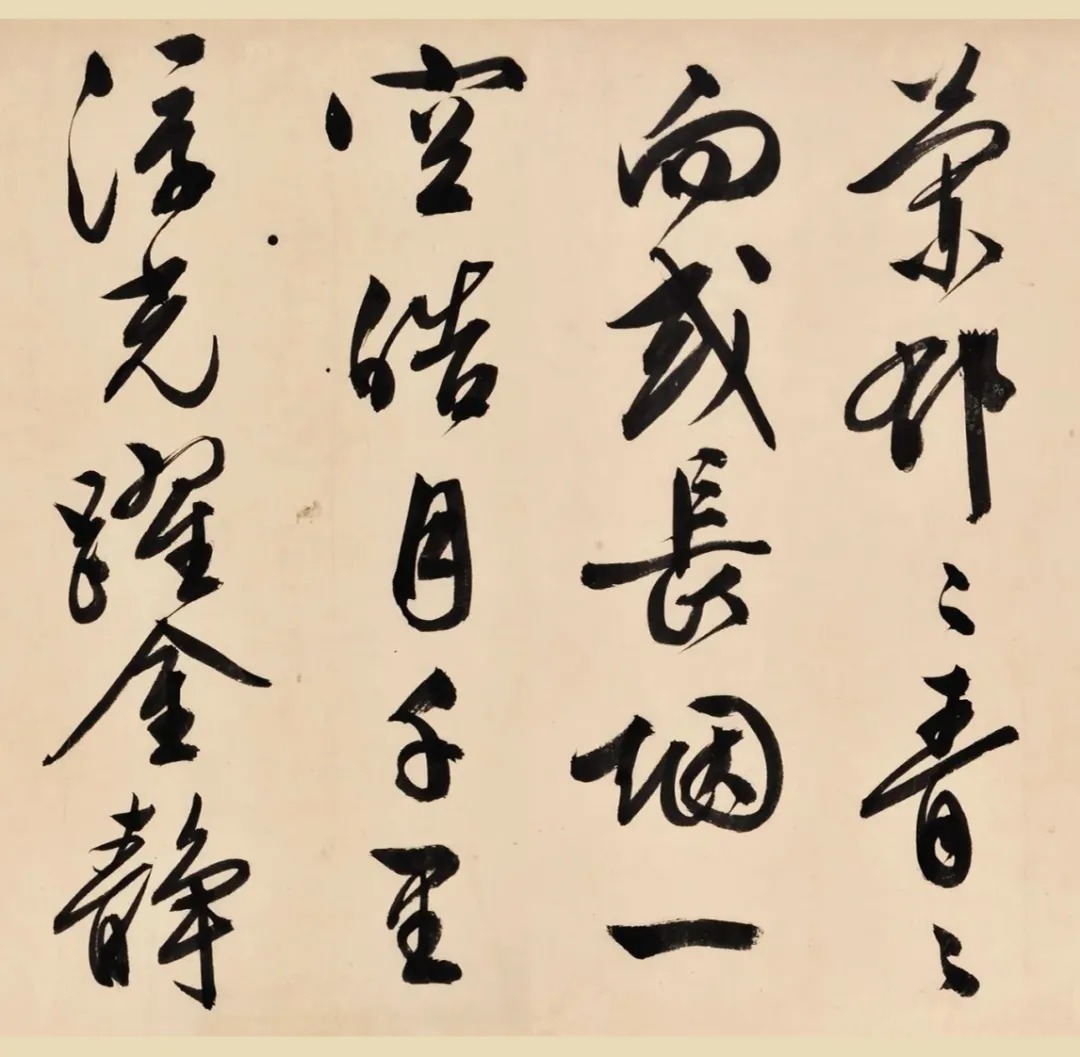 蘭郁々青々
而或長烟一
空皓月千里
浮光躍金静